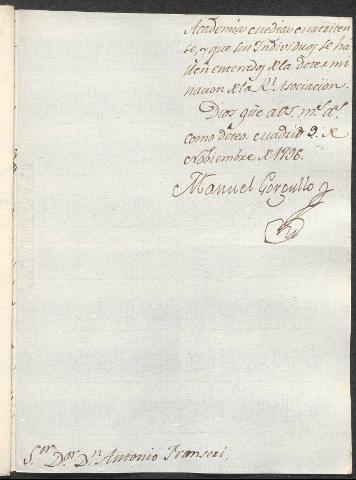 Academia Medica Matriten
se, y que sus Individuos se ha
llen enterados de la determi
nacion de la Rl. Asociacion.
Dios gũe a Vs. ms. as.
como deseo. Madrid 9. de
Noviembre de 1796.
Manuel Gorgullo
Sor. Dor. Dn. Antonio Franseri.